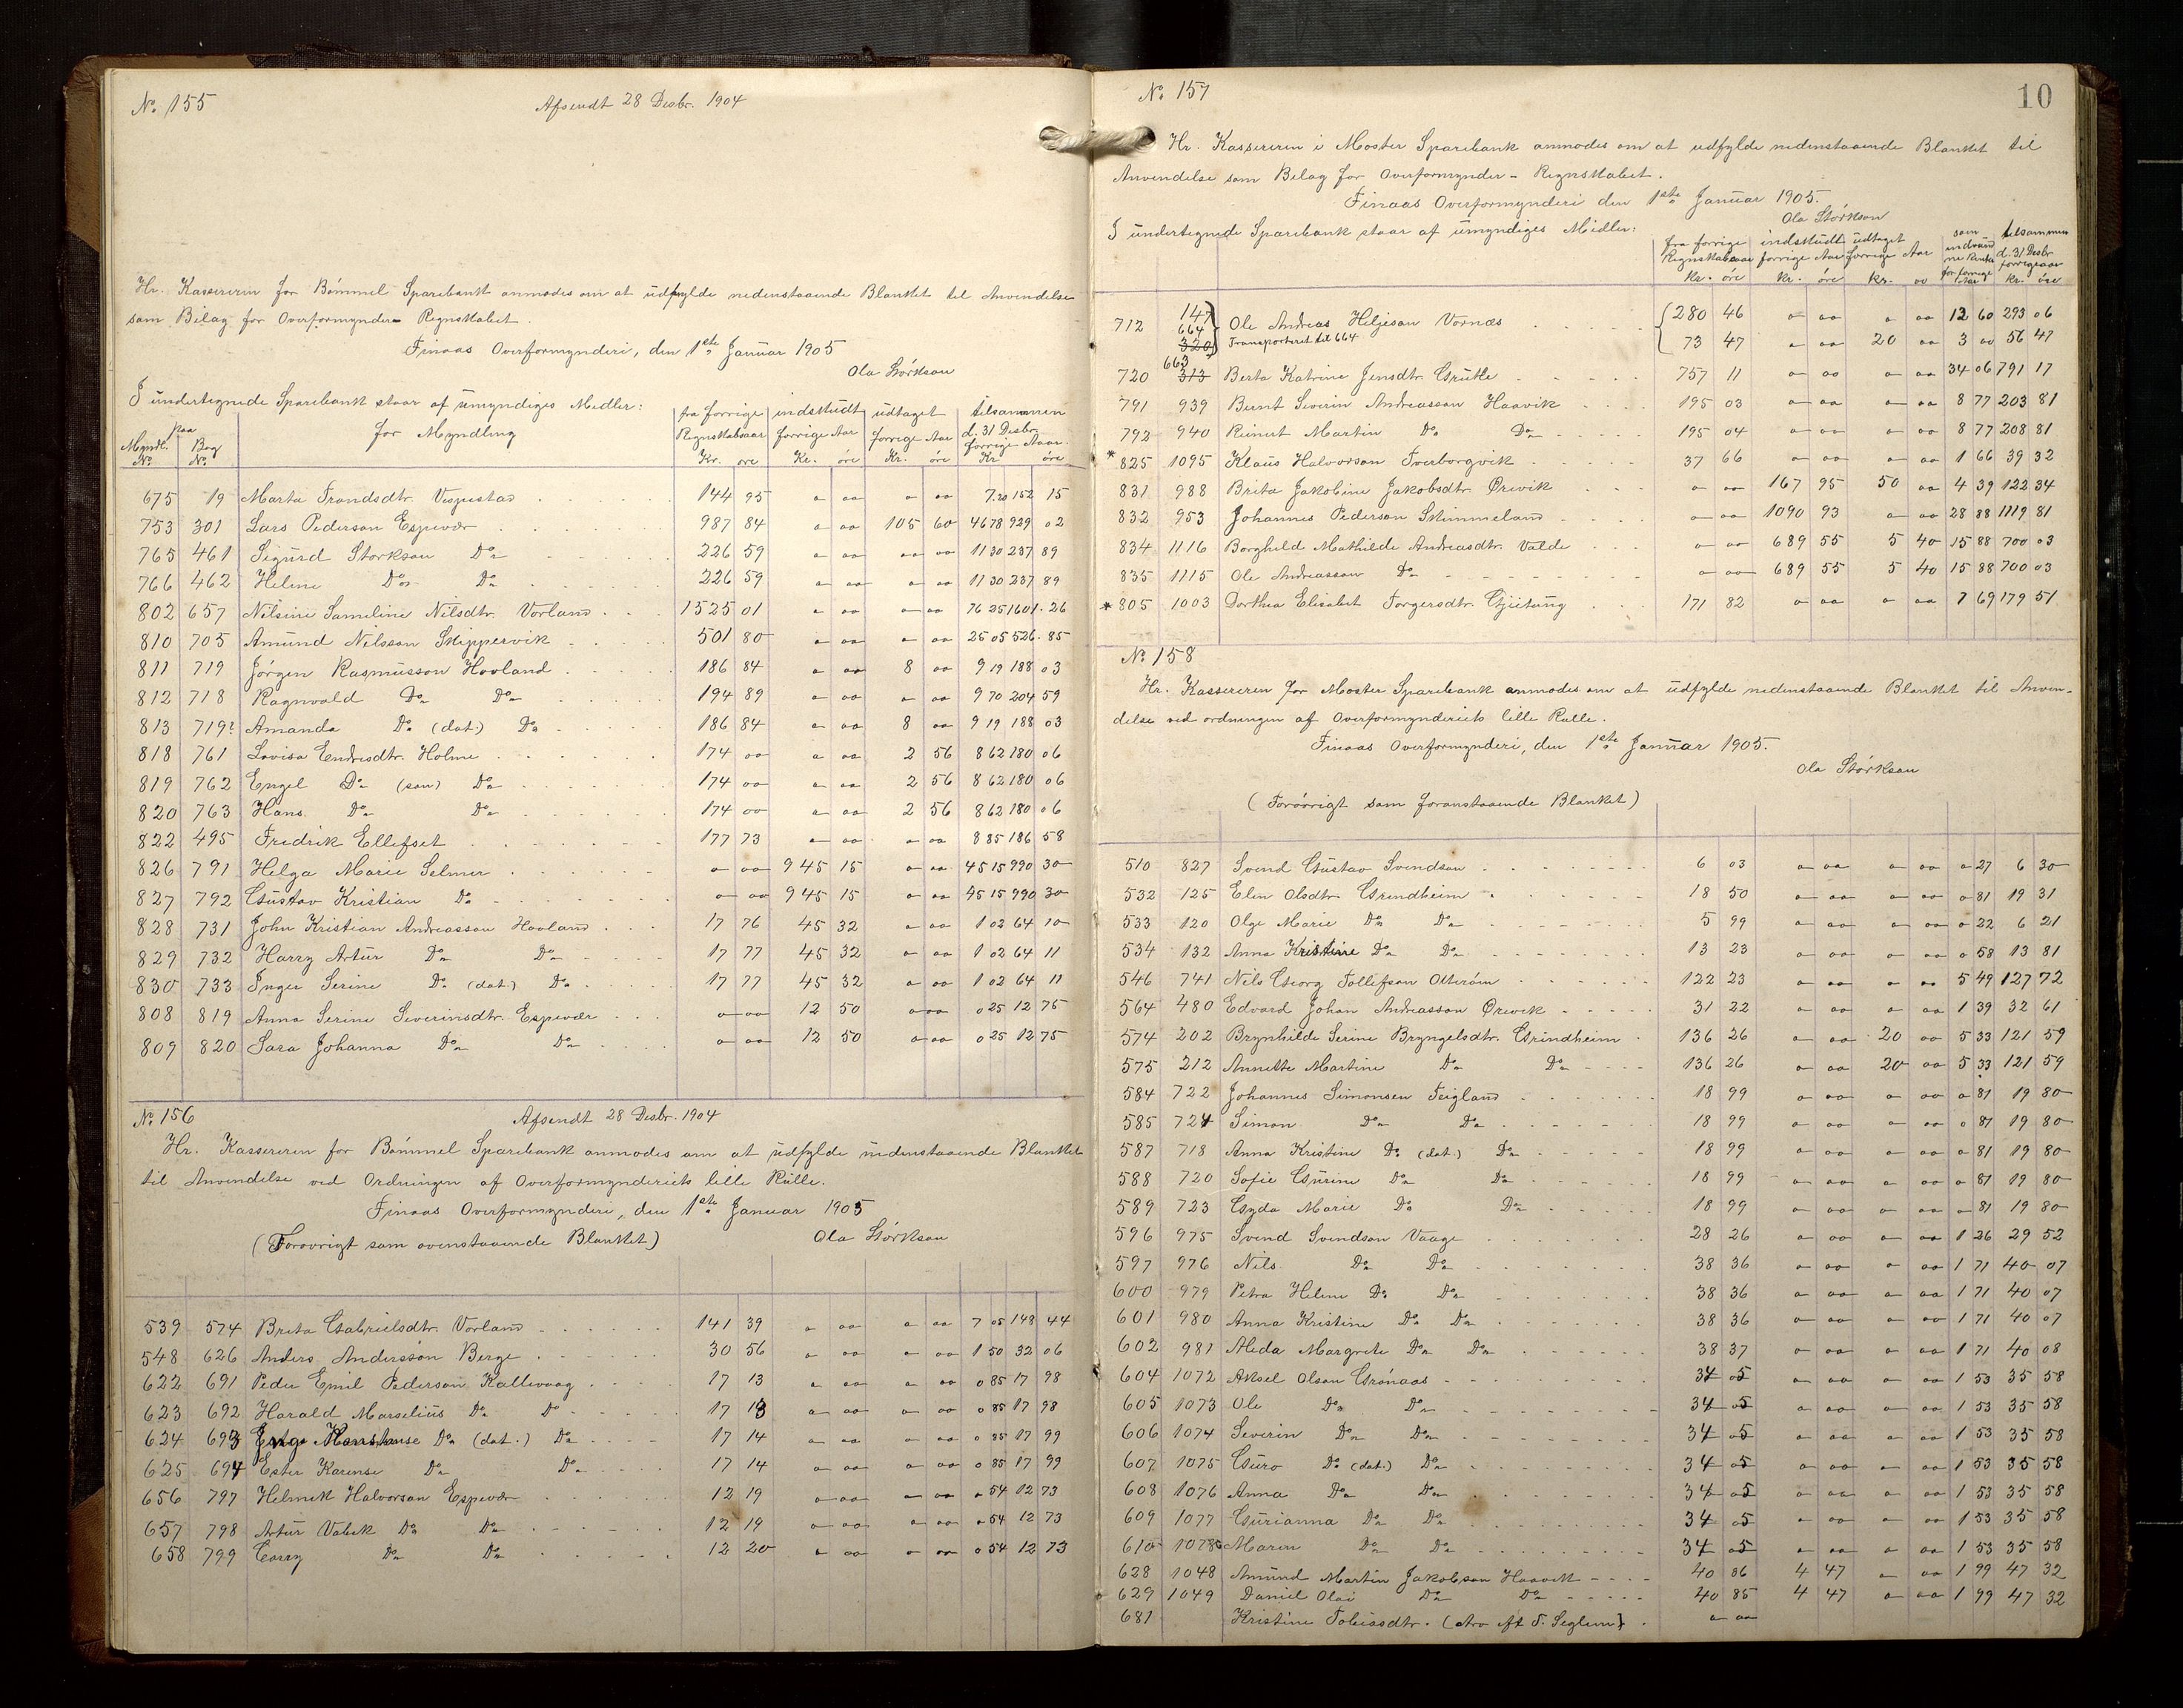 No. 155 Afsendt 28 Desbr. 1904
Hr. Kassereren for Bømmel Sparebank anmodes om at udfylde nedenstaaende Blanket til Anvendelse
som Bilag for Overformynder-Regnskabet.
Finaas Overformynderi, den 1ste Januar 1905
Ola Størkson
I undertegnede Sparebank staar af umyndiges Midler:
Myndl. No. paa Bog No. for Myndling fra forrige Regnskabsaar Kr. øre indskudt forrige Aar Kr. øre udtaget forrige Aar Kr. øre tilsammen d. 31 Desbr. forrige Aar. Kr øre
675 19 Marta Trondsdtr. Vespestad 144 95 0 00 0 00 7.20 152 15
753 301 Lars Pederson Espevær 987 84 0 00 105 60 46 78 929 02
765 461 Sigurd Størkson Do 226 59 0 00 00 00 11 30 237 89
766 462 Helene Do Do 226 59 0 00 0 00 11 30 237 89
802 657 Nilsine Sameline Nilsdtr. Vorland 1525 01 0 00 0 00 76 25 1601.26
810 705 Amund Nilsson Skippervik 501 80 0 00 0 00 25 05 526.85
811 719 Jørgen Rasmusson Hovland 186 84 0 00 8 00 9 19 188 03
812 718 Ragnvald Do Do 194 89 0 00 0 00 9 70 204 59
813 719? Amanda Do (dat.) Do 186 84 0 00 8 00 9 19 188 03
818 761 Lovisa Endresdtr. Holme 174 00 0 00 2 56 8 62 180 06
819 762 Engel Do (søn) Do 174 00 0 00 2 56 8 62 180 06
820 763 Hans Do Do 174 00 0 00 2 56 8 62 180 06
822 495 Fredrik Ellefset 177 73 0 00 0 00 8 85 186 58
826 791 Helga Marie Selmer 0 00 945 15 0 00 45 15 990 30
827 792 Gustav Kristian Do 0 00 945 15 0 00 45 15 990 30
828 731 John Kristian Andreasson Hovland 17 76 45 32 0 00 1 02 64 10
829 732 Harry Artur Do Do 17 77 45 32 0 00 1 02 64 11
830 733 Inger Serine Do (dat.) Do 17 77 45 32 0 00 1 02 64 11
808 819 Anna Serine Severinsdtr. Espevær 0 00 12 50 0 00 0 25 12 75
809 820 Sara Johanna Do Do 0 00 12 50 0 00 0 25 12 75
No. 156 Afsendt 28 Desbr. 1904
Hr. Kassereren for Bømmel Sparebank anmodes om at udfylde nedenstaaende Blanket
til Anvendelse ved Ordningen af Overformynderiets lille Rulle.
Finaas Overformynderi, den 1ste Januar 1905
(Forøvrigt som ovenstaaende Blanket) Ola Størkson
539 574 Brita Gabrielsdtr. Vorland 141 39 0 00 0 00 7 05 148 44
548 626 Anders Andersson Berge 30 56 0 00 0 00 1 50 32 06
622 691 Peder Emil Pederson Kallevaag 17 13 0 00 0 00 0 85 17 98
623 692 Harald Marselius Do Do 17 13 0 00 0 00 0 85 17 98
624 693 Do (dat.) Do 17 14 0 00 0 00 0 85 17 99
625 694 Ester Karense Do Do 17 14 0 00 0 00 0 85 17 99
656 797 Helmik Halvorson Espevær 12 19 0 00 0 00 0 54 12 73
657 798 Artur Do Do 12 19 0 00 0 00 0 54 12 73
658 799 Do Do 12 20 0 00 0 00 0 54 12 73
No. 157 10
Hr. Kassereren i Moster Sparebank anmodes om at udfylde nedenstaaende Blanket til
Anvendelse som Bilag for Overformynder-Regnskabet.
Finaas Overformynderi den 1ste Januar 1905.
Ola Størkson
I undertegnede Sparebank staar af umyndiges Midler:
fra forrige Regnskabsaar Kr. øre indskudt forrige Aar Kr. øre udtaget forrige Aar Kr. 00 som indvundne Renter for forrige Aar tilsammen d. 31 Desbr forrige aar Kr. øre
712 147 664 320 Ole Andreas Heljeson Vornæs 280 46 0 00 0 00 12 60 293 06
Transporteret til 664 73 47 0 00 20 00 3 00 56 47
720 663 313 Berta Katrine Jensdtr. Grutle 757 11 0 00 0 00 34 06 791 17
791 939 Bernt Severin Andreasson Haavik 195 03 0 00 0 00 8 77 203 81
792 940 Reinert Martin Do Do 195 04 0 00 0 00 8 77 208 81
* 825 1095 Klaus Halvorson Tverborgvik 37 66 0 00 0 00 1 66 39 32
831 988 Brita Jakobine Jakobsdtr. Ørevik 0 00 167 95 50 00 4 39 122 34
832 953 Johannes Pederson Skimmeland 0 00 1090 93 0 00 28 88 1119 81
834 1116 Borghild Mathilde Andreasdtr. Valde 0 00 689 55 5 40 15 88 700 03
835 1115 Ole Andreasson Do 0 00 689 55 5 40 15 88 700 03
* 805 1003 Dorthea Elisabet Torgersdtr. Gjeitung 171 82 0 00 0 00 7 69 179 51
No. 158
Hr. Kassereren for Moster Sparebank anmodes om at udfylde nedenstaaende Blanket til Anven-
delse ved ordningen af Overformynderiets lille Rulle.
Finaas Overformynderi, den 1ste Januar 1905.
Ola Størkson
(Forøvrigt som foranstaaende Blanket)
510 827 Svend Gustav Svendson 6 03 0 00 0 00 0 27 6 30
532 125 Elen Olsdtr. Grindheim 18 50 0 00 0 00 0 81 19 31
533 120 Olge Marie Do Do 5 99 0 00 0 00 0 22 6 21
534 132 Anna Kristine Do Do 13 23 0 00 0 00 0 58 13 81
546 741 Nils Georg Tollefson 122 23 0 00 0 00 5 49 127 72
564 480 Edvard Johan Andreasson Ørevik 31 22 0 00 0 00 1 39 32 61
574 202 Brynhilde Serine Bryngelsdtr. Grindheim 136 26 0 00 20 00 5 33 121 59
575 212 Annette Martine Do Do 136 26 0 00 20 00 5 33 121 59
584 722 Johannes Simonsen Teigland 18 99 0 00 0 00 0 81 19 80
585 724 Simon Do Do 18 99 0 00 0 00 0 81 19 80
587 718 Anna Kristine Do (dat.) Do 18 99 0 00 0 00 0 81 19 80
588 720 Sofie Gurine Do Do 18 99 0 00 0 00 0 81 19 80
589 723 Gyda Marie Do Do 18 99 0 00 0 00 0 81 19 80
596 975 Svend Svendson Vaage 28 26 0 00 0 00 1 26 29 52
597 976 Nils Do Do 38 36 0 00 0 00 1 71 40 07
600 979 Petra Helene Do Do 38 36 0 00 0 00 1 71 40 07
601 980 Anna Kristine Do Do 38 36 0 00 0 00 1 71 40 07
602 981 Aleda Margrete Do Do 38 37 0 00 0 00 1 71 40 08
604 1072 Aksel Olson Grønaas 34 05 0 00 0 00 1 53 35 58
605 1073 Ole Do Do 34 05 0 00 0 00 1 53 35 58
606 1074 Severin Do Do 34 05 0 00 0 00 1 53 35 58
607 1075 Guro Do (dat.) Do 34 05 0 00 0 00 1 53 35 58
608 1076 Anna Do Do 34 05 0 00 0 00 1 53 35 58
609 1077 Gurianna Do Do 34 05 0 00 0 00 1 53 35 58
610 1078 Maren Do Do 34 05 0 00 0 00 1 53 35 58
628 1048 Amund Martin Jakobson Haavik 40 86 4 47 0 00 1 99 47 32
* 629 1049 Daniel Olai Do Do 40 85 4 47 0 00 1 99 47 32
681 Kristine Tobiasdtr. (Arv aft T. Seglem) 0 00